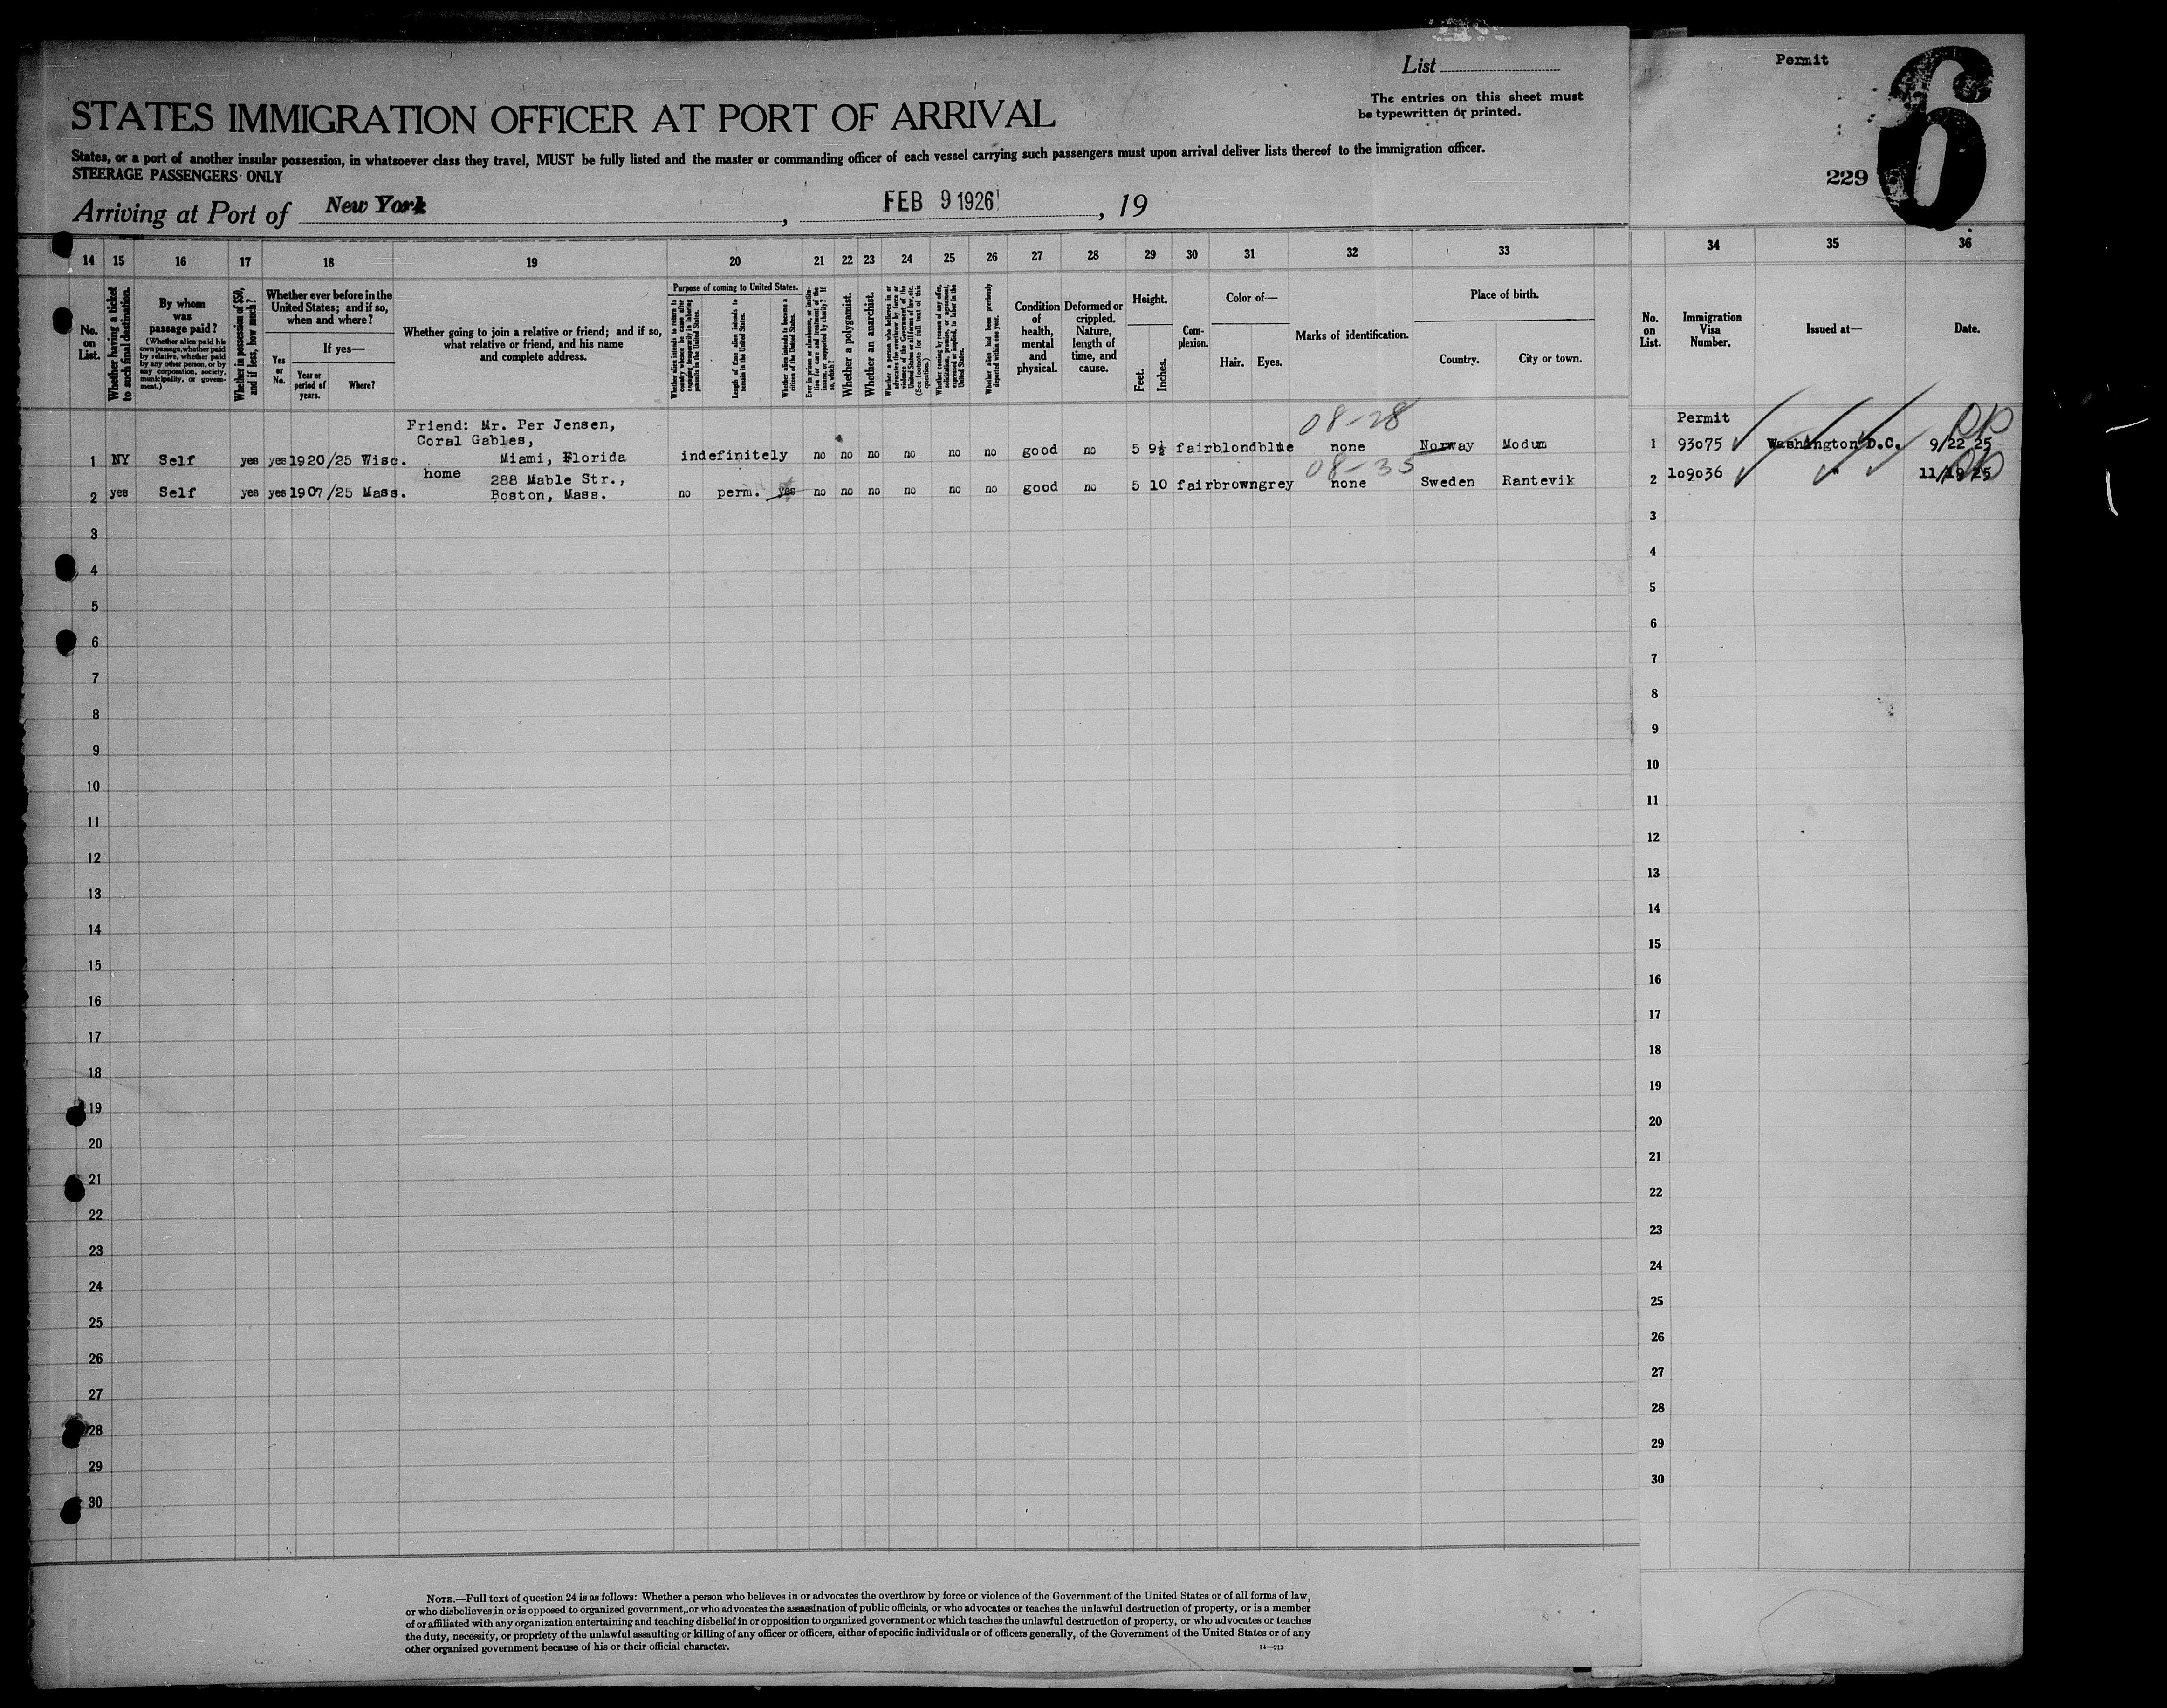 List
Permit
6
The entries on this sheet must
be typewritten or printed.
STATES IMMIGRATION OFFICER AT PORT OF ARRIVAL
States, or a port of another insular possession, in whatsoever class they travel, MUST be fully listed and the master or commanding officer of each vessel carrying such passengers must upon arrival deliver lists thereof to the immigration officer.
STEERAGE PASSENGERS ONLY
229
Arriving at Port of New York, FEB 9 1926, 19
14 15 16 17 18 19 20 21 22 23 24 25 26 27 28 29 30 31 32 33
34 35 36
No. on List.
Whether having a ticket to such final destination.
By whom was passage paid?
(Whether alien paid his own passage, whether paid by relative, whether paid by any other person, or by any corporation, society, municipality, or government.)
Whether in possession of $50, and if less, how much?
Whether ever before in the United States; and if so, when and where?
Yes or No.
If yes—
Year or period of years.
Where?
Whether going to join a relative or friend; and if so, what relative or friend, and his name and complete address.
Purpose of coming to United States.
Whether alien intends to return to country whence he came after engaging temporarily in laboring pursuits in the United States.
Length of time alien intends to remain in the United States.
Whether alien intends to become a citizen of the United States.
Ever in prison or almshouse, or institution for care and treatment of the insane, or supported by charity? If so, which?
Whether a polygamist.
Whether an anarchist.
Whether a person who believes in or advocates the overthrow by force or violence of the Government of the United States or all forms of law, etc. (See footnote for full text of this question.)
Whether coming by reason of any offer, solicitation, promise, or agreement, expressed or implied, to labor in the United States.
Whether alien had been previously deported within one year.
Condition of health, mental and physical.
Deformed or crippled. Nature, length of time, and cause.
Height.
Feet. Inches.
Complexion.
Color of—
Hair. Eyes.
Marks of identification.
Place of birth.
Country. City or town.
No. on List.
Immigration Visa Number.
Issued at—
Date.
Friend: Mr. Per Jensen,
Coral Gables,
08-28
Permit
1 NY Self yes yes 1920/25 Wisc. Miami, Florida indefinitely no no no no no no good no 5 9½ fair blond blue none Norway Modum
1 93075 Washington D.C. 9/22 25
home 288 Mable Str.,
08-35
2 yes Self yes yes 1907/25 Mass. Boston, Mass. no perm. yes no no no no no no good no 5 10 fair brown grey none Sweden Rantevik
2 109036 " 11/19 25
3 3
4 4
5 5
6 6
7 7
8 8
9 9
10 10
11 11
12 12
13 13
14 14
15 15
16 16
17 17
18 18
19 19
20 20
21 21
22 22
23 23
24 24
25 25
26 26
27 27
28 28
29 29
30 30
NOTE.—Full text of question 24 is as follows: Whether a person who believes in or advocates the overthrow by force or violence of the Government of the United States or of all forms of law,
or who disbelieves in or is opposed to organized government, or who advocates the assassination of public officials, or who advocates or teaches the unlawful destruction of property, or is a member
of or affiliated with any organization entertaining and teaching disbelief in or opposition to organized government or which teaches the unlawful destruction of property, or who advocates or teaches
the duty, necessity, or propriety of the unlawful assaulting or killing of any officer or officers, either of specific individuals or of officers generally, of the Government of the United States or of any
other organized government because of his or their official character.
14—213